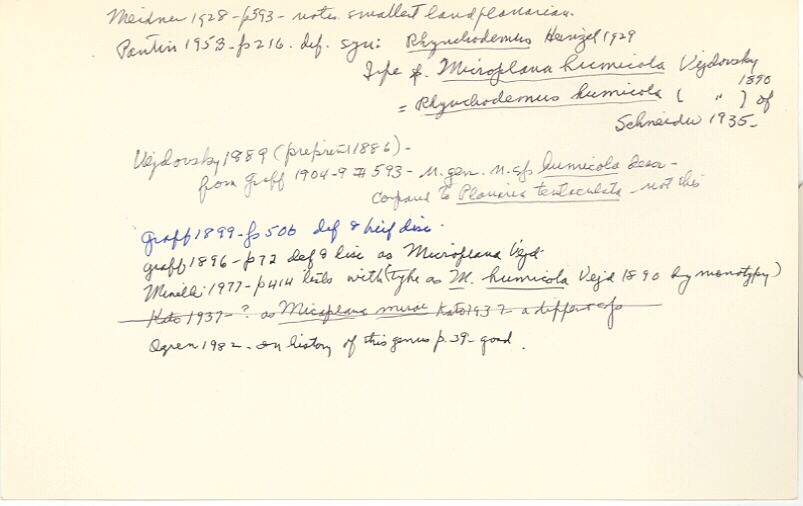 Meixner 1928 - p593 - notes smallest land planarian.
Pantin 1953 - p216. def. syn: Rhynchodemus Heinzel 1929
Type sp. Microplana humicola Vejdovsky 1890
= Rhynchodemus humicola ( " ) of
Schneider 1935 -
Vejdovsky 1889 (preprint 1886) -
from Graff 1904-9 # 593 - n. gen. n. sp humicola descr -
compared to Planaria tentaculata - not this
Graff 1899 - p 506 def & brief disc.
Graff 1896 - p 72 def & disc as Microplana Vejd.
Minelli 1977 - p 414 lists with (type as M. humicola Vejd 1890 by monotypy)
Kato 1937 - ? as Microplana Kato 1937 - a different sp
Ogren 1982 - on history of this genus p. 39 - good.